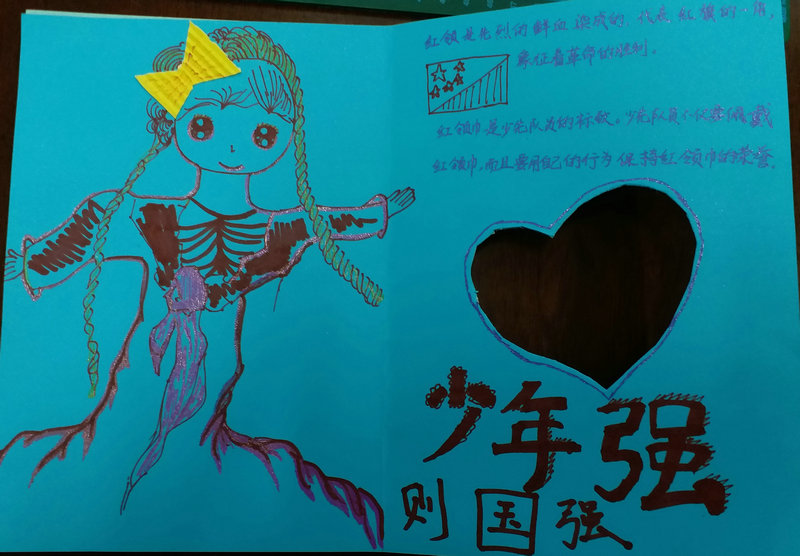 红领是先烈的鲜血染成的,代表红旗的一角,
象征着革命的胜利。
红领巾是少先队员的标敏。少先队员不仅要佩戴
红领巾,而且要用自己的行为保持红领巾的荣誉。
少年强
则国强